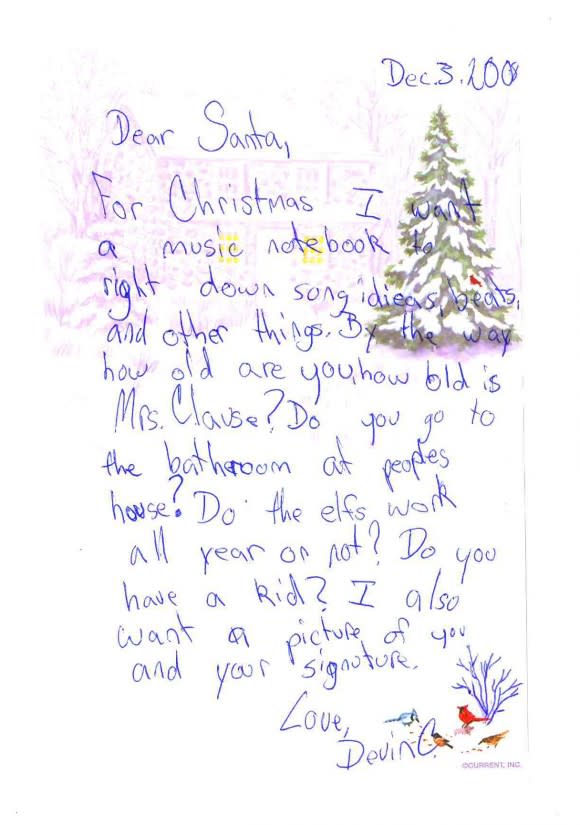 Dec. 3. 2008
Dear Santa,
For Christmas I want
a music notebook to
right down song idieas, beats,
and other things. By the way
how old are you, how old is
Mrs. Clause? Do you go to
the bathroom at peoples
house? Do the elfs work
all year or not? Do you
have a kid? I also
want a picture of you
and your signuture.
Love,
Devin C.
©CURRENT, INC.